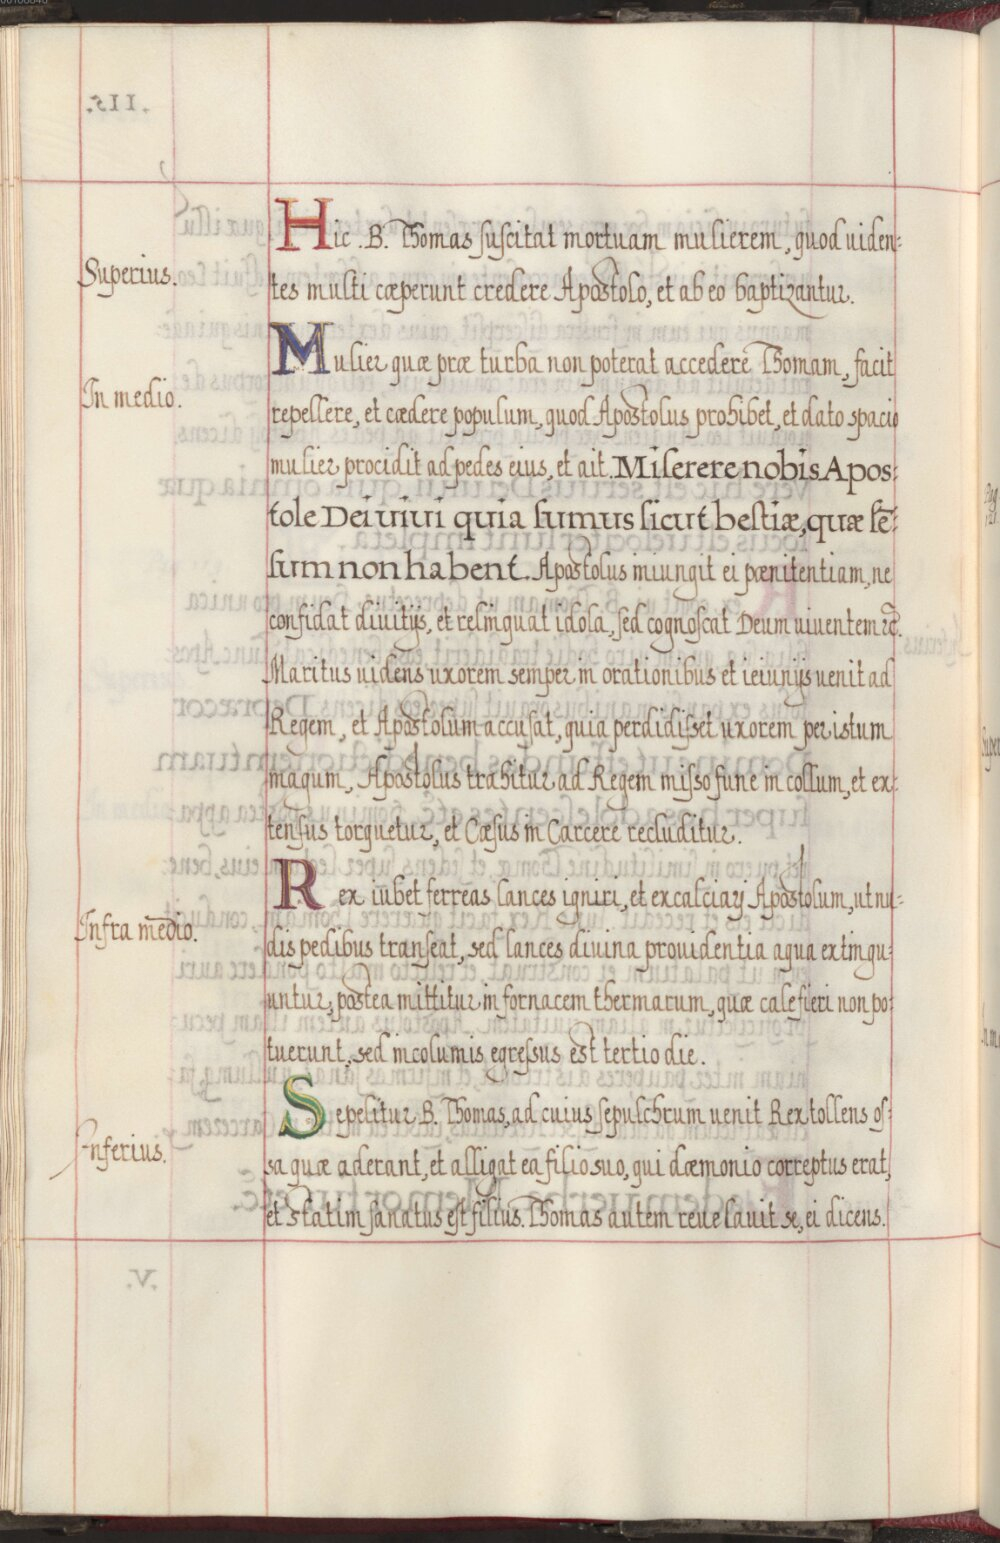 Hic .B. Thomas suscitat mortuam mulierem, quod uiden-
Superius.
tes multi cæperunt credere Apostolo, et ab eo baptizantur.
Mulier quæ præ turba non poterat accedere Thomam, facit
In medio.
repellere, et cædere populum, quod Apostolus prohibet, et dato spacio
mulier procidit ad pedes eius, et ait. Miserere nobis Apos-
tole Dei uiui quia sumus sicut bestiæ, quæ sē-
sum non habent. Apostolus iniungit ei pœnitentiam, ne
confidat diuitijs, et relinquat idola, sed cognoscat Deum uiuentem &c.
Maritus uidens uxorem semper in orationibus et ieiunijs uenit ad
Regem, et Apostolum accusat, quia perdidisset uxorem per istum
magum, Apostolus trahitur ad Regem misso fune in collum, et ex-
tensus torquetur, et Cæsus in Carcere recluditur.
Rex iubet ferreas lances igniri, et excalciari Apostolum, ut nu-
Infra medio.
dis pedibus transeat, sed lances diuina prouidentia aqua extingu-
untur, postea mittitur in fornacem thermarum, quæ calefieri non po-
tuerunt, sed incolumis egressus est tertio die.
Sepelitur B. Thomas, ad cuius sepulchrum uenit Rex tollens os-
Inferius.
sa quæ aderant, et alligat ea filio suo, qui dæmonio correptus erat,
et statim sanatus est filius. Thomas autem reuelauit se, ei dicens.